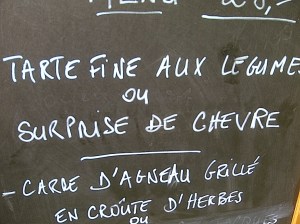 MENU 28,-
TARTE FINE AUX LEGUME
OU
SURPRISE DE CHEVRE
- CARRE D'AGNEAU GRILLÉ
EN CROÛTE D'HERBES
OU